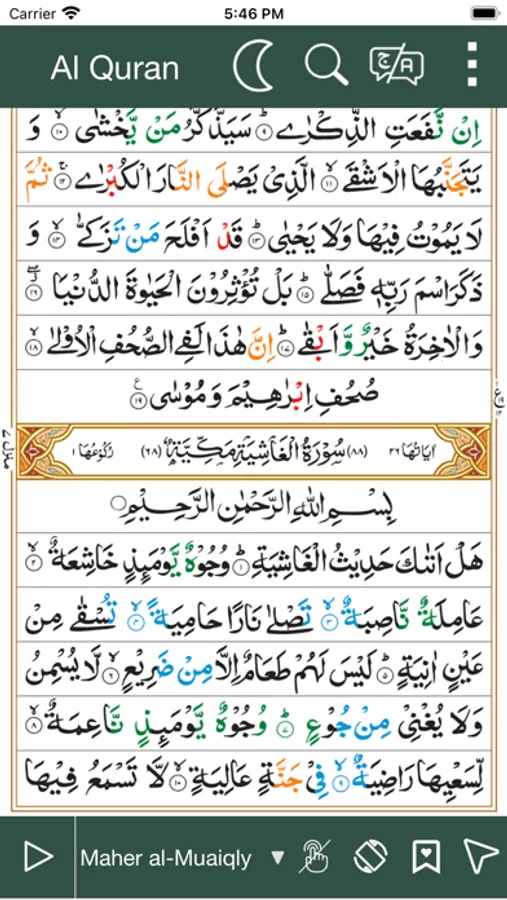 Carrier 5:46 PM
Al Quran
اِنْ نَّفَعَتِ الذِّكْرٰى ؕ۹ سَيَذَّكَّرُ مَنْ يَّخْشٰى ۙ۱۰ وَ
يَتَجَنَّبُهَا الْاَشْقَى ۙ۱۱ الَّذِيْ يَصْلَى النَّارَ الْكُبْرٰى ۚ۱۲ ثُمَّ
لَا يَمُوْتُ فِيْهَا وَلَا يَحْيٰى ؕ۱۳ قَدْ اَفْلَحَ مَنْ تَزَكّٰى ۙ۱۴ وَ
ذَكَرَ اسْمَ رَبِّهٖ فَصَلّٰى ؕ۱۵ بَلْ تُؤْثِرُوْنَ الْحَيٰوةَ الدُّنْيَا ۖ۱۶
وَالْاٰخِرَةُ خَيْرٌ وَّاَبْقٰى ؕ۱۷ اِنَّ هٰذَا لَفِي الصُّحُفِ الْاُوْلٰى ۙ۱۸
صُحُفِ اِبْرٰهِيْمَ وَمُوْسٰى ۱۹
اٰيَاتُهَا ۲۶ (۸۸) سُوْرَةُ الْغَاشِيَةِ مَكِّيَّةٌ (۶۸) رُكُوْعُهَا ۱
منزل ۷
بِسْمِ اللّٰهِ الرَّحْمٰنِ الرَّحِيْمِ
هَلْ اَتٰىكَ حَدِيْثُ الْغَاشِيَةِ ؕ۱ وُجُوْهٌ يَّوْمَىِٕذٍ خَاشِعَةٌ ۙ۲
عَامِلَةٌ نَّاصِبَةٌ ۙ۳ تَصْلٰى نَارًا حَامِيَةً ۙ۴ تُسْقٰى مِنْ
عَيْنٍ اٰنِيَةٍ ؕ۵ لَيْسَ لَهُمْ طَعَامٌ اِلَّا مِنْ ضَرِيْعٍ ۙ۶ لَّا يُسْمِنُ
وَلَا يُغْنِيْ مِنْ جُوْعٍ ؕ۷ وُجُوْهٌ يَّوْمَىِٕذٍ نَّاعِمَةٌ ۙ۸
لِّسَعْيِهَا رَاضِيَةٌ ۙ۹ فِيْ جَنَّةٍ عَالِيَةٍ ۙ۱۰ لَّا تَسْمَعُ فِيْهَا
Maher al-Muaiqly